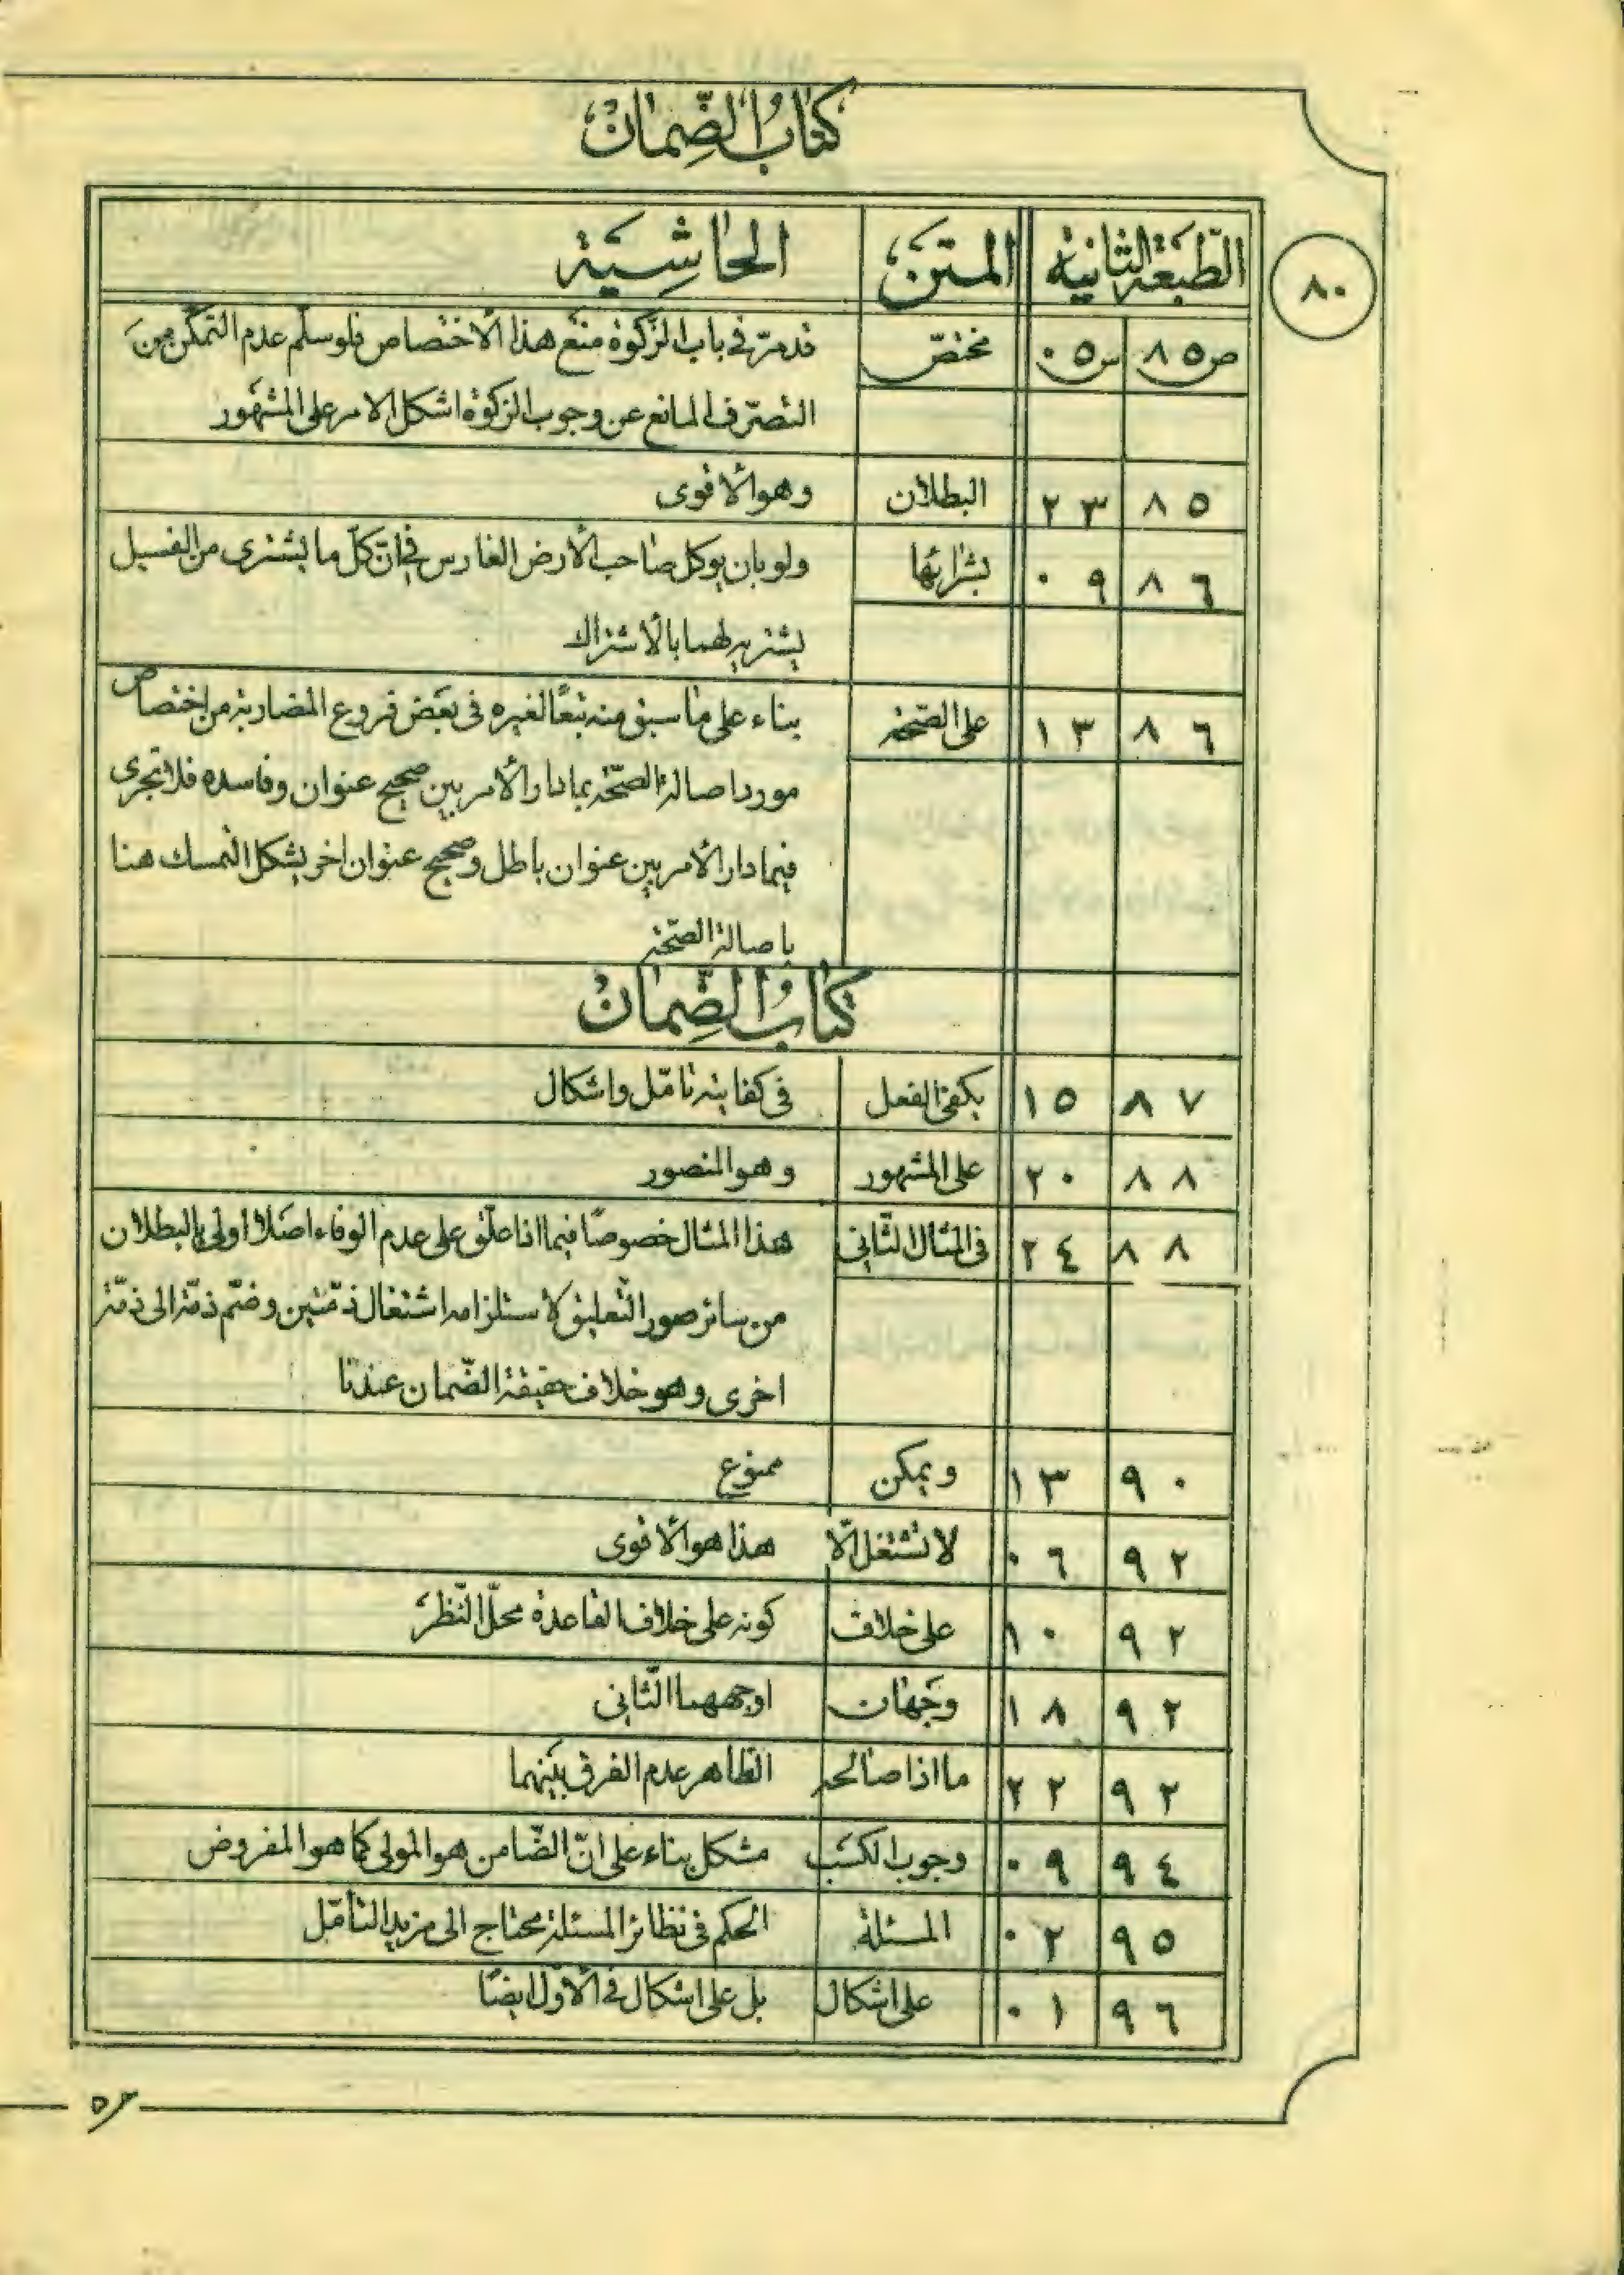 كتاب الضّمان
٨٠
الطّبعة الثانية المتن الحاشية
ص ٨٥ س ٠٥ مختصّ قد مرّ في باب الزكوة منع هذا الاختصاص فلو سلّم عدم التمكّن من
التصرّف المانع عن وجوب الزكوة اشكل الامر على المشهور
٨٥ ٢٣ البطلان وهو الأقوى
٨٦ ٠٩ بشرائها ولو بان يوكل صاحب الأرض الغارس في انّ كلّ ما يشترى من الفسيل
يشتريه لهما بالاشتراك
٨٦ ١٣ على الصّحة بناء على ما سبق منه تبعًا لغيره في بعض فروع المضاربة من اختصاص
مورد اصالة الصّحة بما دار الأمر بين صحيح عنوان وفاسده فلا تجرى
فيما دار الأمر بين عنوان باطل وصحيح عنوان اخر يشكل التمسك هنا
باصالة الصّحة
كتاب الضّمان
٨٧ ١٥ يكفى الفعل في كفايته تامّل واشكال
٨٨ ٢٠ على المشهور وهو المنصور
٨٨ ٢٤ في المثال الثّاني هذا المثال خصوصًا فيما اذا علّق على عدم الوفاء اصلا اولى بالبطلان
من سائر صور التّعليق لاستلزامه اشتغال ذمّتين وضمّ ذمّة الى ذمّة
اخرى وهو خلاف حقيقة الضّمان عندنا
٩٠ ١٣ ويمكن ممنوع
٩٢ ٠٦ لا تشتغل الّا هذا هو الأقوى
٩٢ ١٠ على خلاف كونه على خلاف القاعدة محلّ النّظر
٩٢ ١٨ وجهان اوجههما الثّاني
٩٢ ٢٢ ما اذا صالحه الظاهر عدم الفرق بينهما
٩٤ ٠٩ وجوب الكسب مشكل بناء على انّ الضّامن هو المولى كما هو المفروض
٩٥ ٠٢ المسئلة الحكم في نظائر المسئلة محتاج الى مزيد التأمّل
٩٦ ٠١ على اشكال بل على اشكال في الأوّل ايضًا